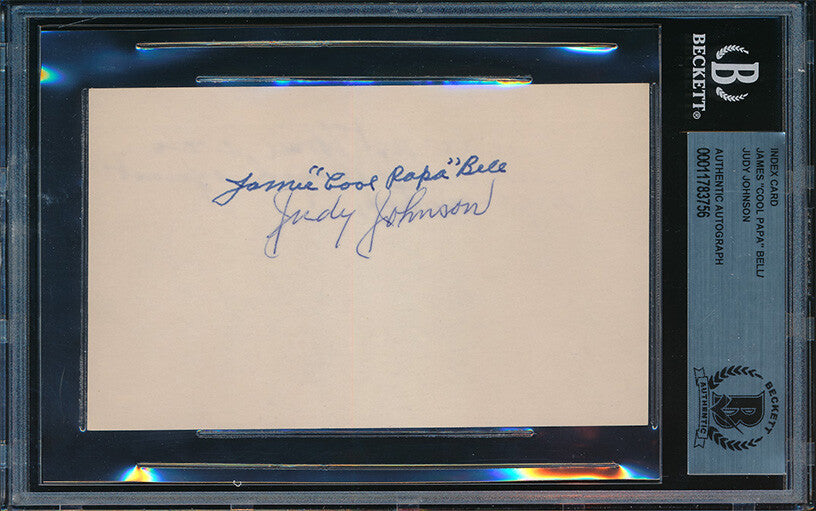 Jamie "Cool Papa" Bell
Judy Johnson
BECKETT®
B
INDEX CARD
JAMES "COOL PAPA" BELL/
JUDY JOHNSON
AUTHENTIC AUTOGRAPH
00011783756
BECKETT
B
AUTHENTIC